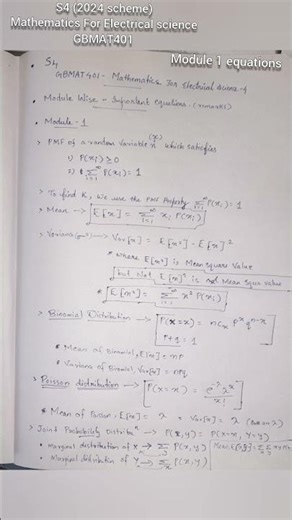 S4 (2024 scheme)
Mathematics For Electrical science
GBMAT401
Module 1 equations
S4
GBMAT401 - Mathematics For Electrical Science-4
Module Wise - Important equations
Module - 1
> PMF of a random variable (x) which satisfies
1) P(xi) ≥ 0
2) ∑ i=1 ∞ P(xi) = 1
> To find K, we use the PMF Property ∑ i=1 ∞ P(xi) = 1
> Mean → E[x] = ∑ i=1 ∞ xi P(xi)
→ Var[x] = E[x²] - E[x]²
* where E[x²] is Mean square Value
but Not E[x]² is not Mean Square Value
* E[x²] = ∑ i=1 ∞ x² P(xi)
> Binomial Distribution → P(X=x) = nCx p^x q^n-x
P+q = 1
* Mean of Binomial, E[x] = np
* Variance of Binomial Var[x] = npq
> Poisson distribution → P(X=x) = e^-λ λ^x / x!
* Mean of Poisson, E[x] = λ * Var[x] = λ
> Joint Probability Distribution → P(x,y) = P(X=x, Y=y)
* Marginal distribution of x → ∑ P(x,y)
* Marginal distribution of y → ∑ P(x,y)